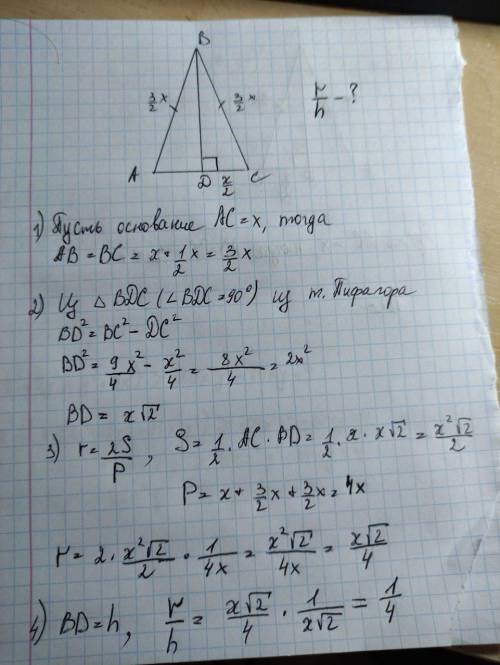 B
3/2 x 3/2 x r/h - ?
A D x/2 C
1) Пусть основание AC = x, тогда
AB = BC = x + 1/2 x = 3/2 x
2) Из △ BDC (∠BDC = 90°) из т. Пифагора
BD² = BC² - DC²
BD² = 9/4 x² - x²/4 = 8x²/4 = 2x²
BD = x√2
3) r = 2S/P, S = 1/2 · AC · BD = 1/2 · x · x√2 = x²√2/2
P = x + 3/2 x + 3/2 x = 4x
r = 2 · x²√2/2 · 1/4x = x²√2/4x = x√2/4
4) BD = h, r/h = x√2/4 · 1/x√2 = 1/4